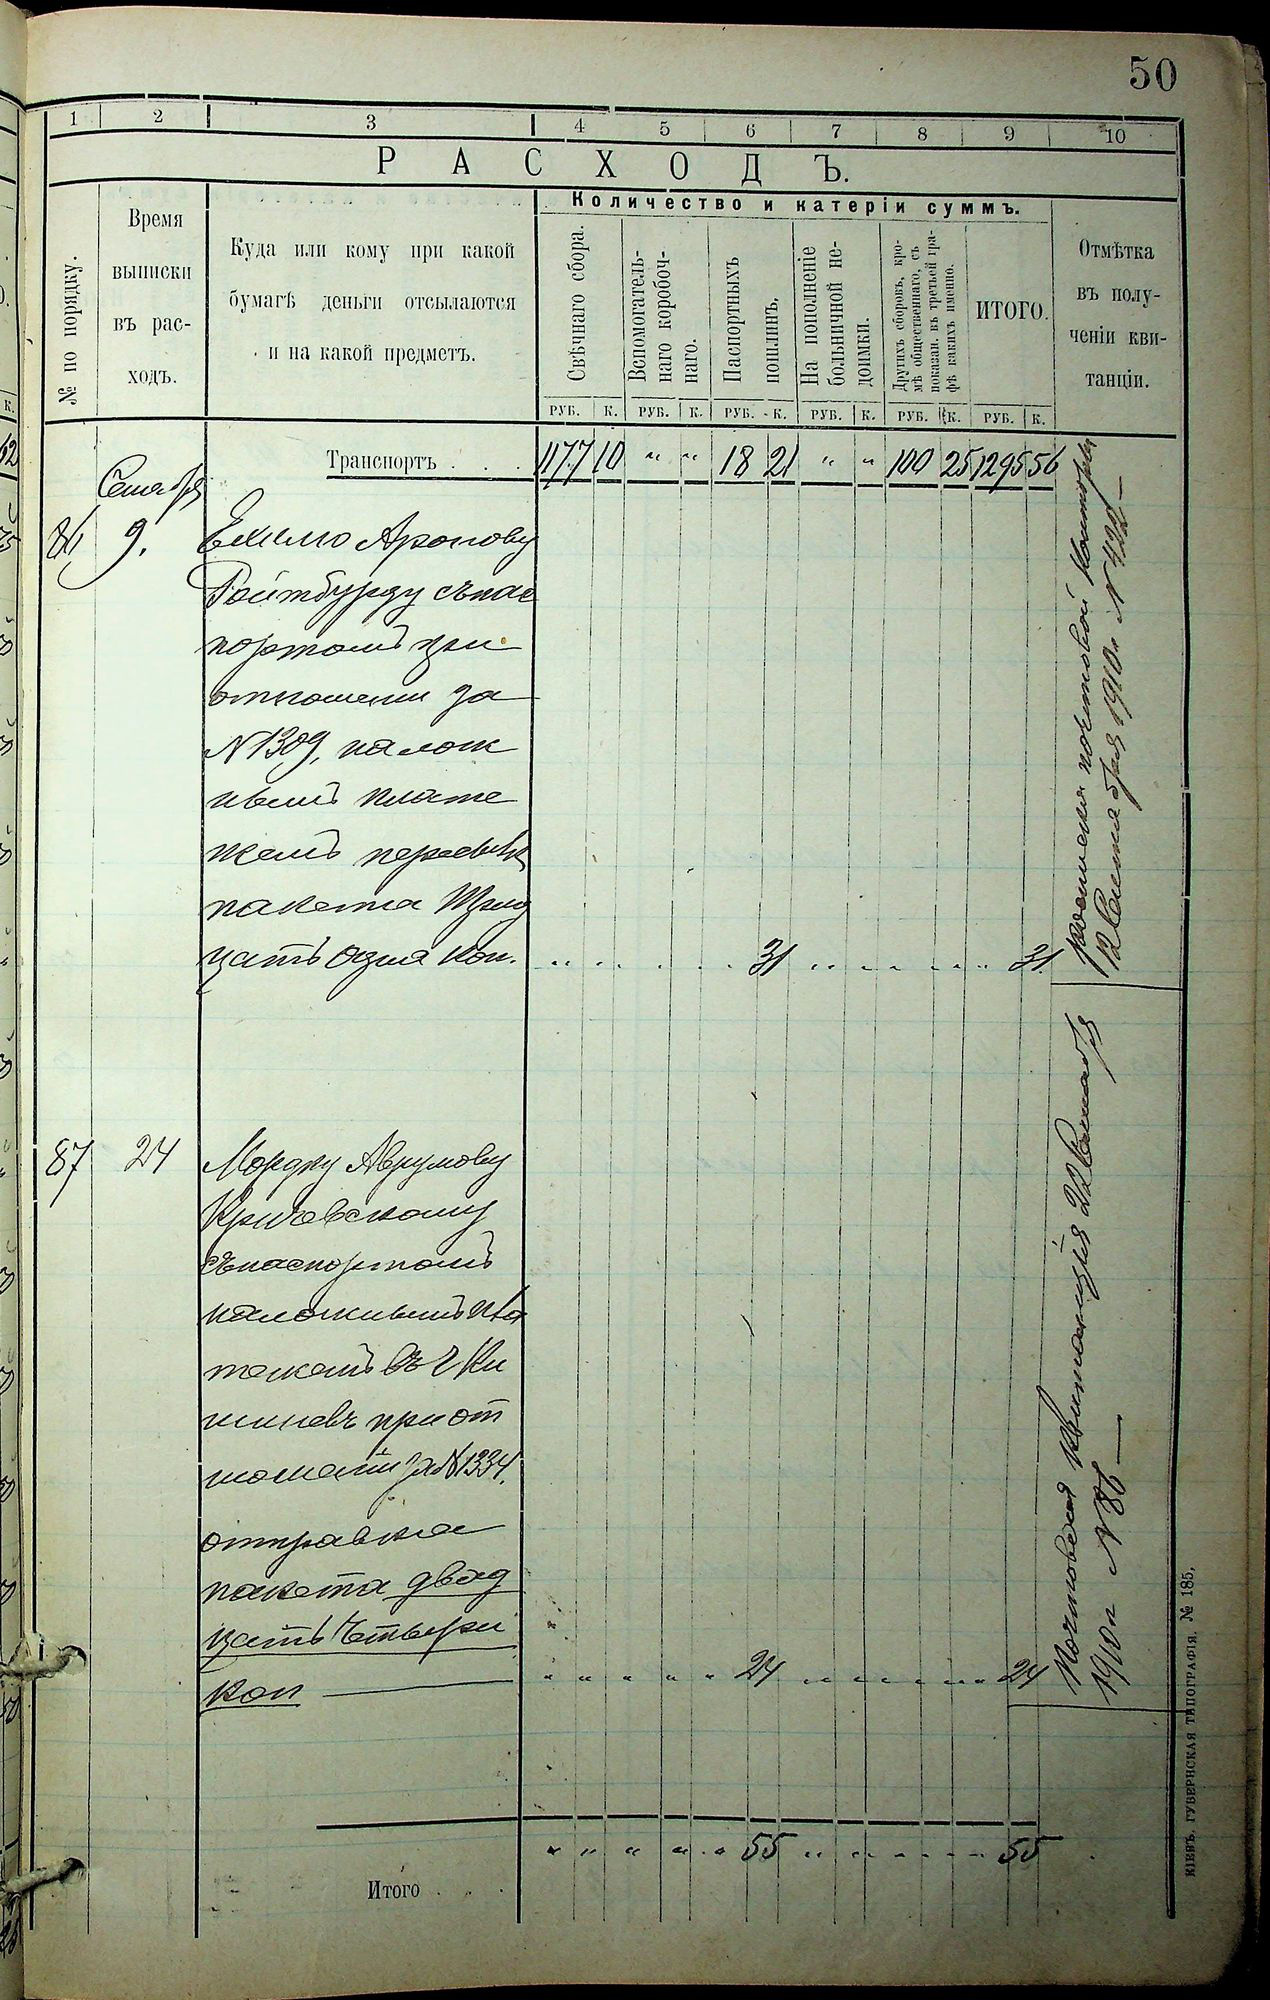 50
1 2 3 4 5 6 7 8 9 10
РАСХОДЪ.
№ по порядку.
Время
выписки
въ рас-
ходъ.
Куда или кому при какой
бумагѣ деньги отсылаются
и на какой предметъ.
Количество и катеріи суммъ.
Свѣчнаго сбора.
Вспомогатель-
наго коробоч-
наго.
Паспортныхъ
пошлинъ.
На пополненіе
больничной не-
доимки.
Другихъ сборовъ, кро-
мѣ общественнаго, съ
показан. въ третьей гра-
фѣ какихъ именно.
ИТОГО.
Отмѣтка
въ полу-
ченіи кви-
танціи.
РУБ. К. РУБ. К. РУБ. К. РУБ. К. РУБ. К. РУБ. К.
Транспортъ . . . 1177 10 " " 18 21 " " 100 25 1295 56
Сентября
86 9.
Аронову
Ройтбурду съ пас
портомъ при
отношении за
N 1309, налож
нымъ плате
жемъ пересылка
пакета Трид
цать одна коп. 31 31
почтовой Конторы
12 Сентября 1910 г N 428
87 24 Мордку Аврумову
Кричевскому
съ паспортомъ
наложнымъ пла
тежемъ въ г Ки
шиневъ при от
ношеніи за N 1334.
отправка
пакета двад
цать четыри
коп 24 24
Почтовая Квитанція 22 Сентября
1910 г N 86
Итого 55 55
КІЕВЪ, ГУБЕРНСКАЯ ТИПОГРАФІЯ. № 185.